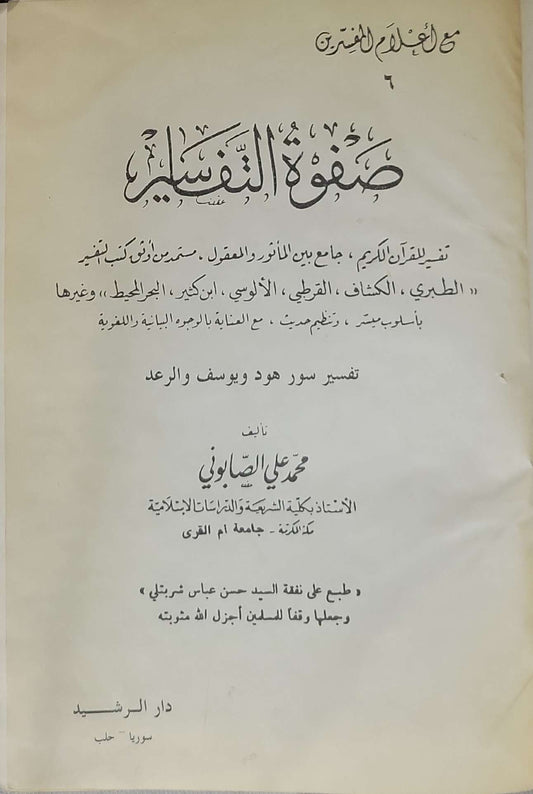 مع أعلام المفسرين
٦
صَفْوَةُ التَّفَاسِير
تفسير للقرآن الكريم ، جامع بين المأثور والمعقول ، مستمد من أوثق كتب التفسير
« الطبري ، الكشاف ، القرطبي ، الألوسي ، ابن كثير ، البحر المحيط » وغيرها
بأسلوب ميسر ، وتنظيم حديث ، مع العناية بالوجوه البيانية واللغوية
تفسير سور هود ويوسف والرعد
تأليف
محمد علي الصابوني
الأستاذ بكلية الشريعة والدراسات الإسلامية
مكة المكرمة - جامعة ام القرى
« طبع على نفقة السيد حسن عباس شربتلي »
وجعلها وقفاً للمسلمين أجزل الله مثوبته
دار الرشيد
سوريا - حلب